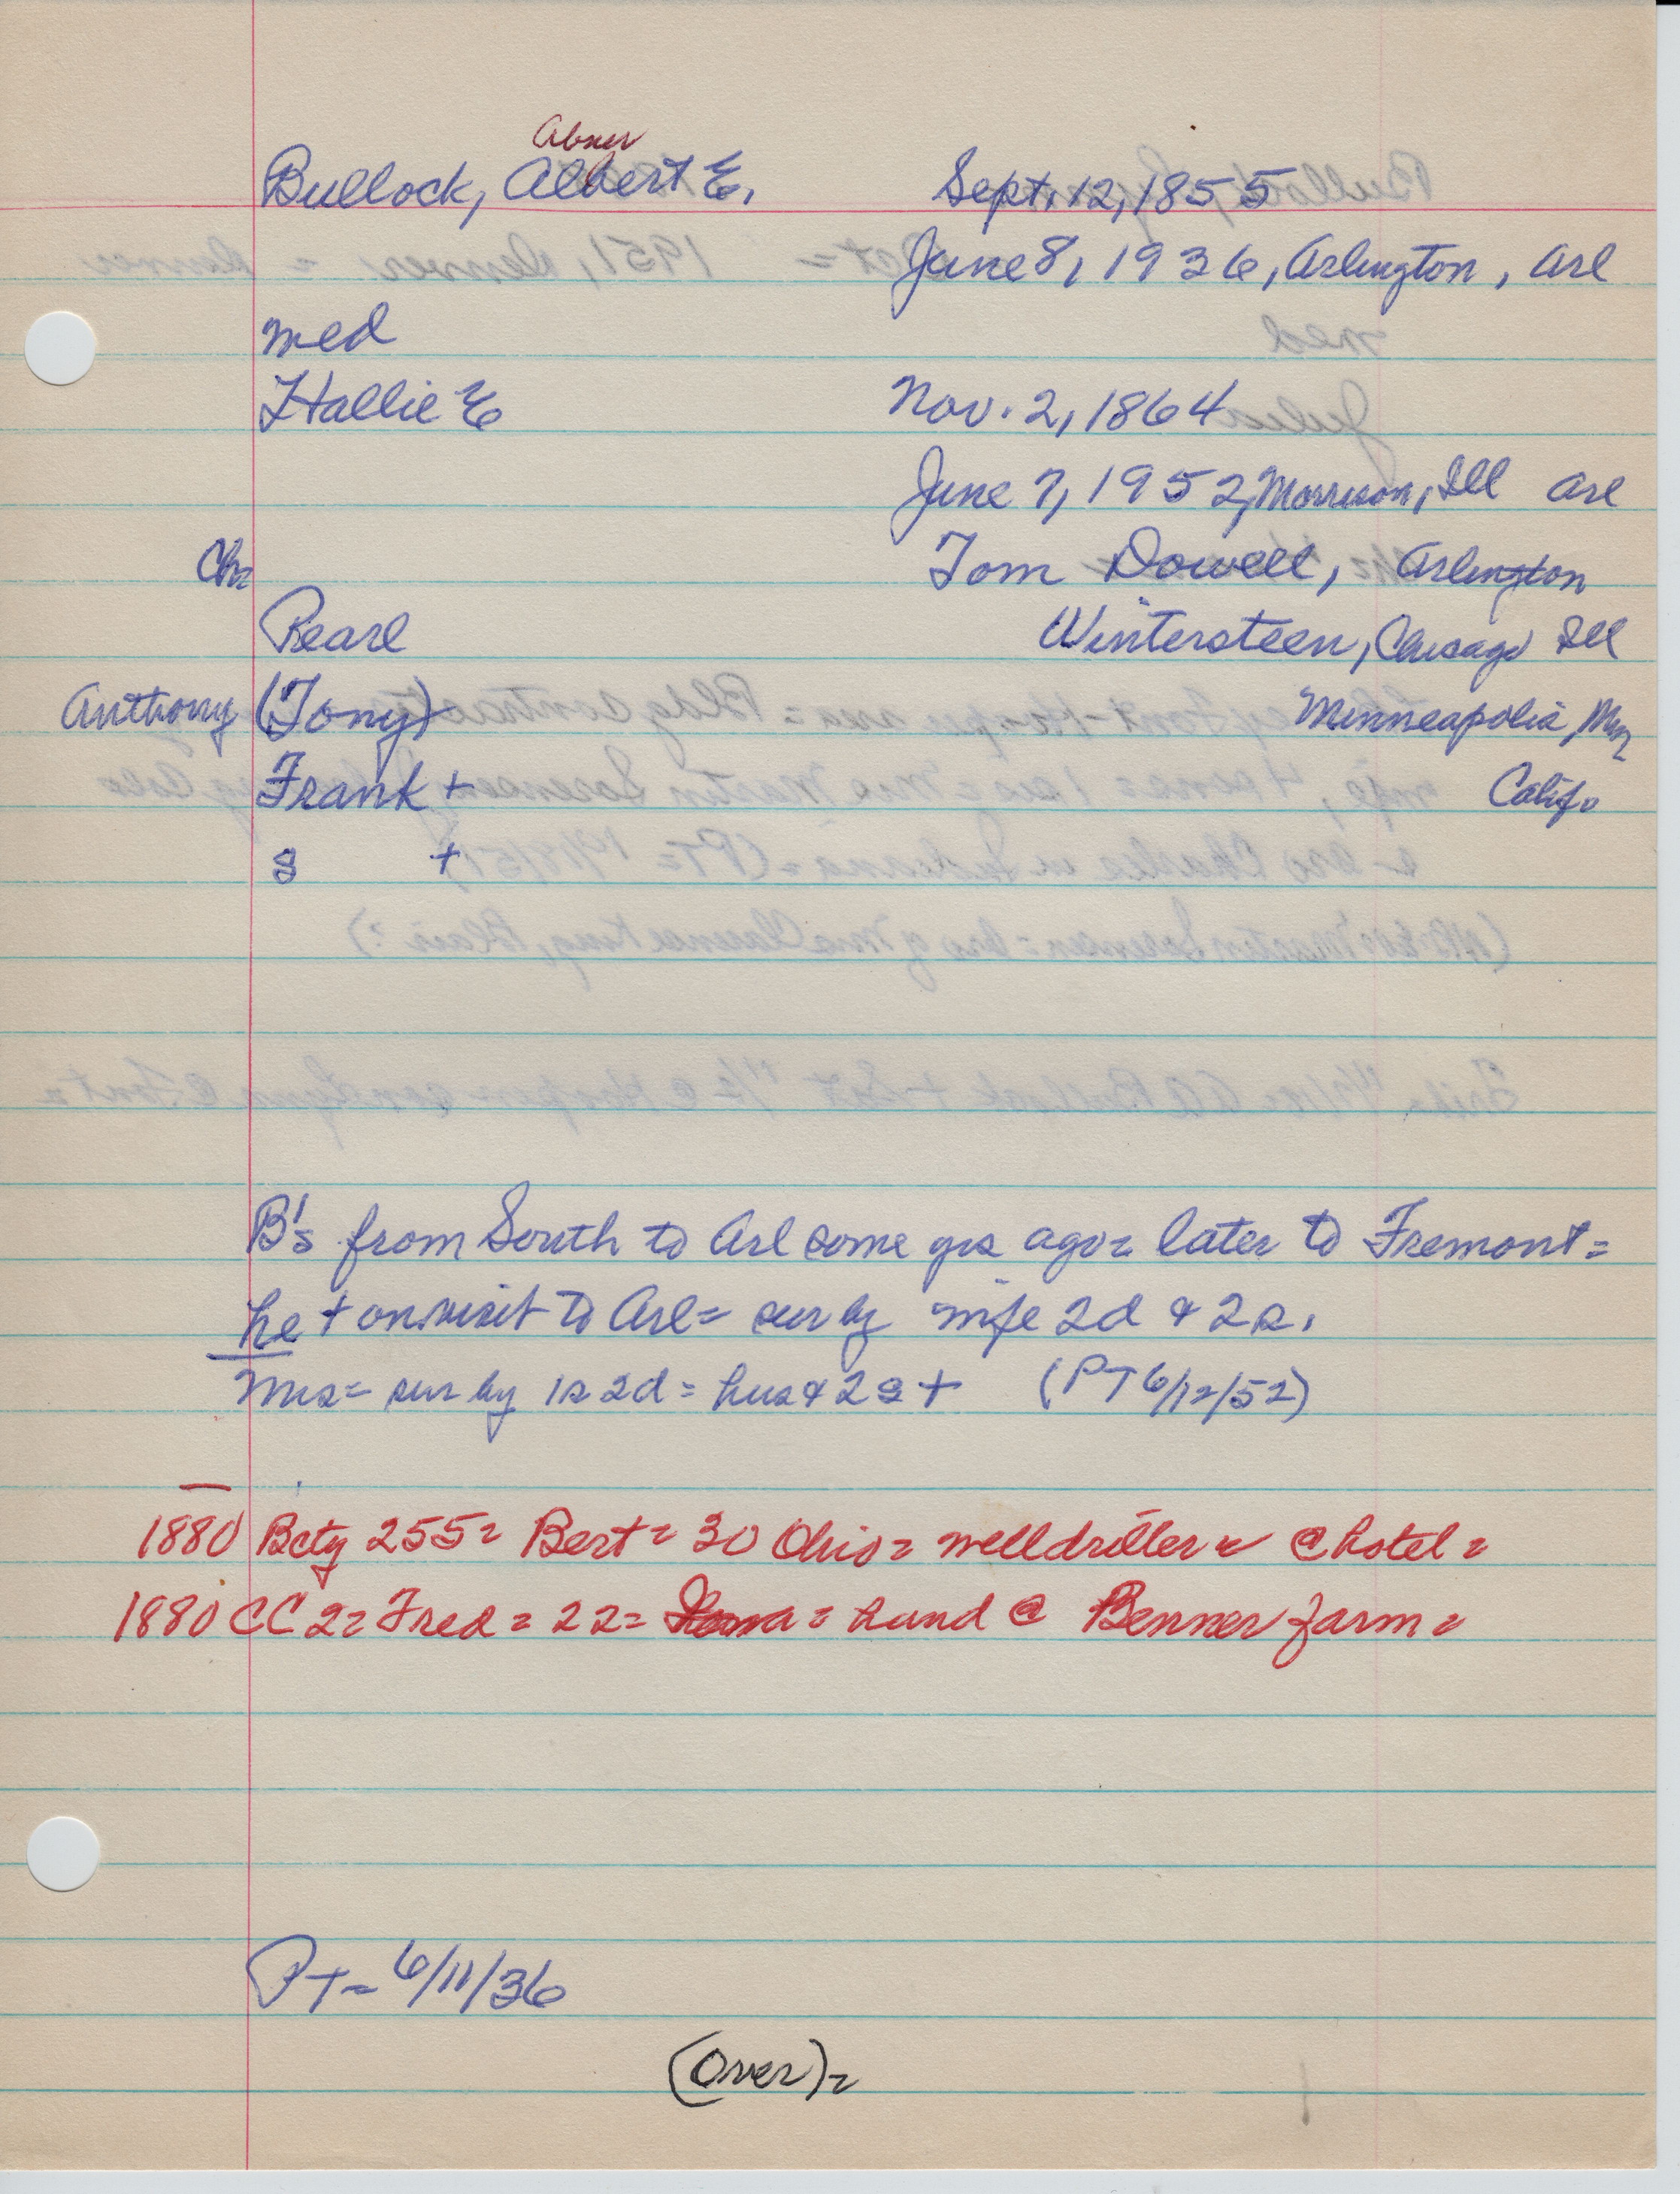 Abner
Bullock, Albert E. Sept. 12, 1855
June 8, 1936, Arlington, Arl
med
Hallie E Nov. 2, 1864
June 7, 1952, Morrison, Ill Arl
Ch= Tom Dowell, Arlington
Pearl Wintersteen, Chicago Ill
Anthony (Tony) Minneapolis, Mn
Frank + Calif.
s +
B's from South to Arl some yrs ago= later to Fremont=
he + on visit to Arl= sur by wife 2d & 2s.
Mrs= sur by 1s 2d= hus & 2s + (PT 6/12/52)
1880 Bcty 255= Bert= 30 Ohio= welldriller= @ hotel=
1880 CC 2= Fred= 22= = hand @ Benner farm=
PT= 6/11/36
(Over)=